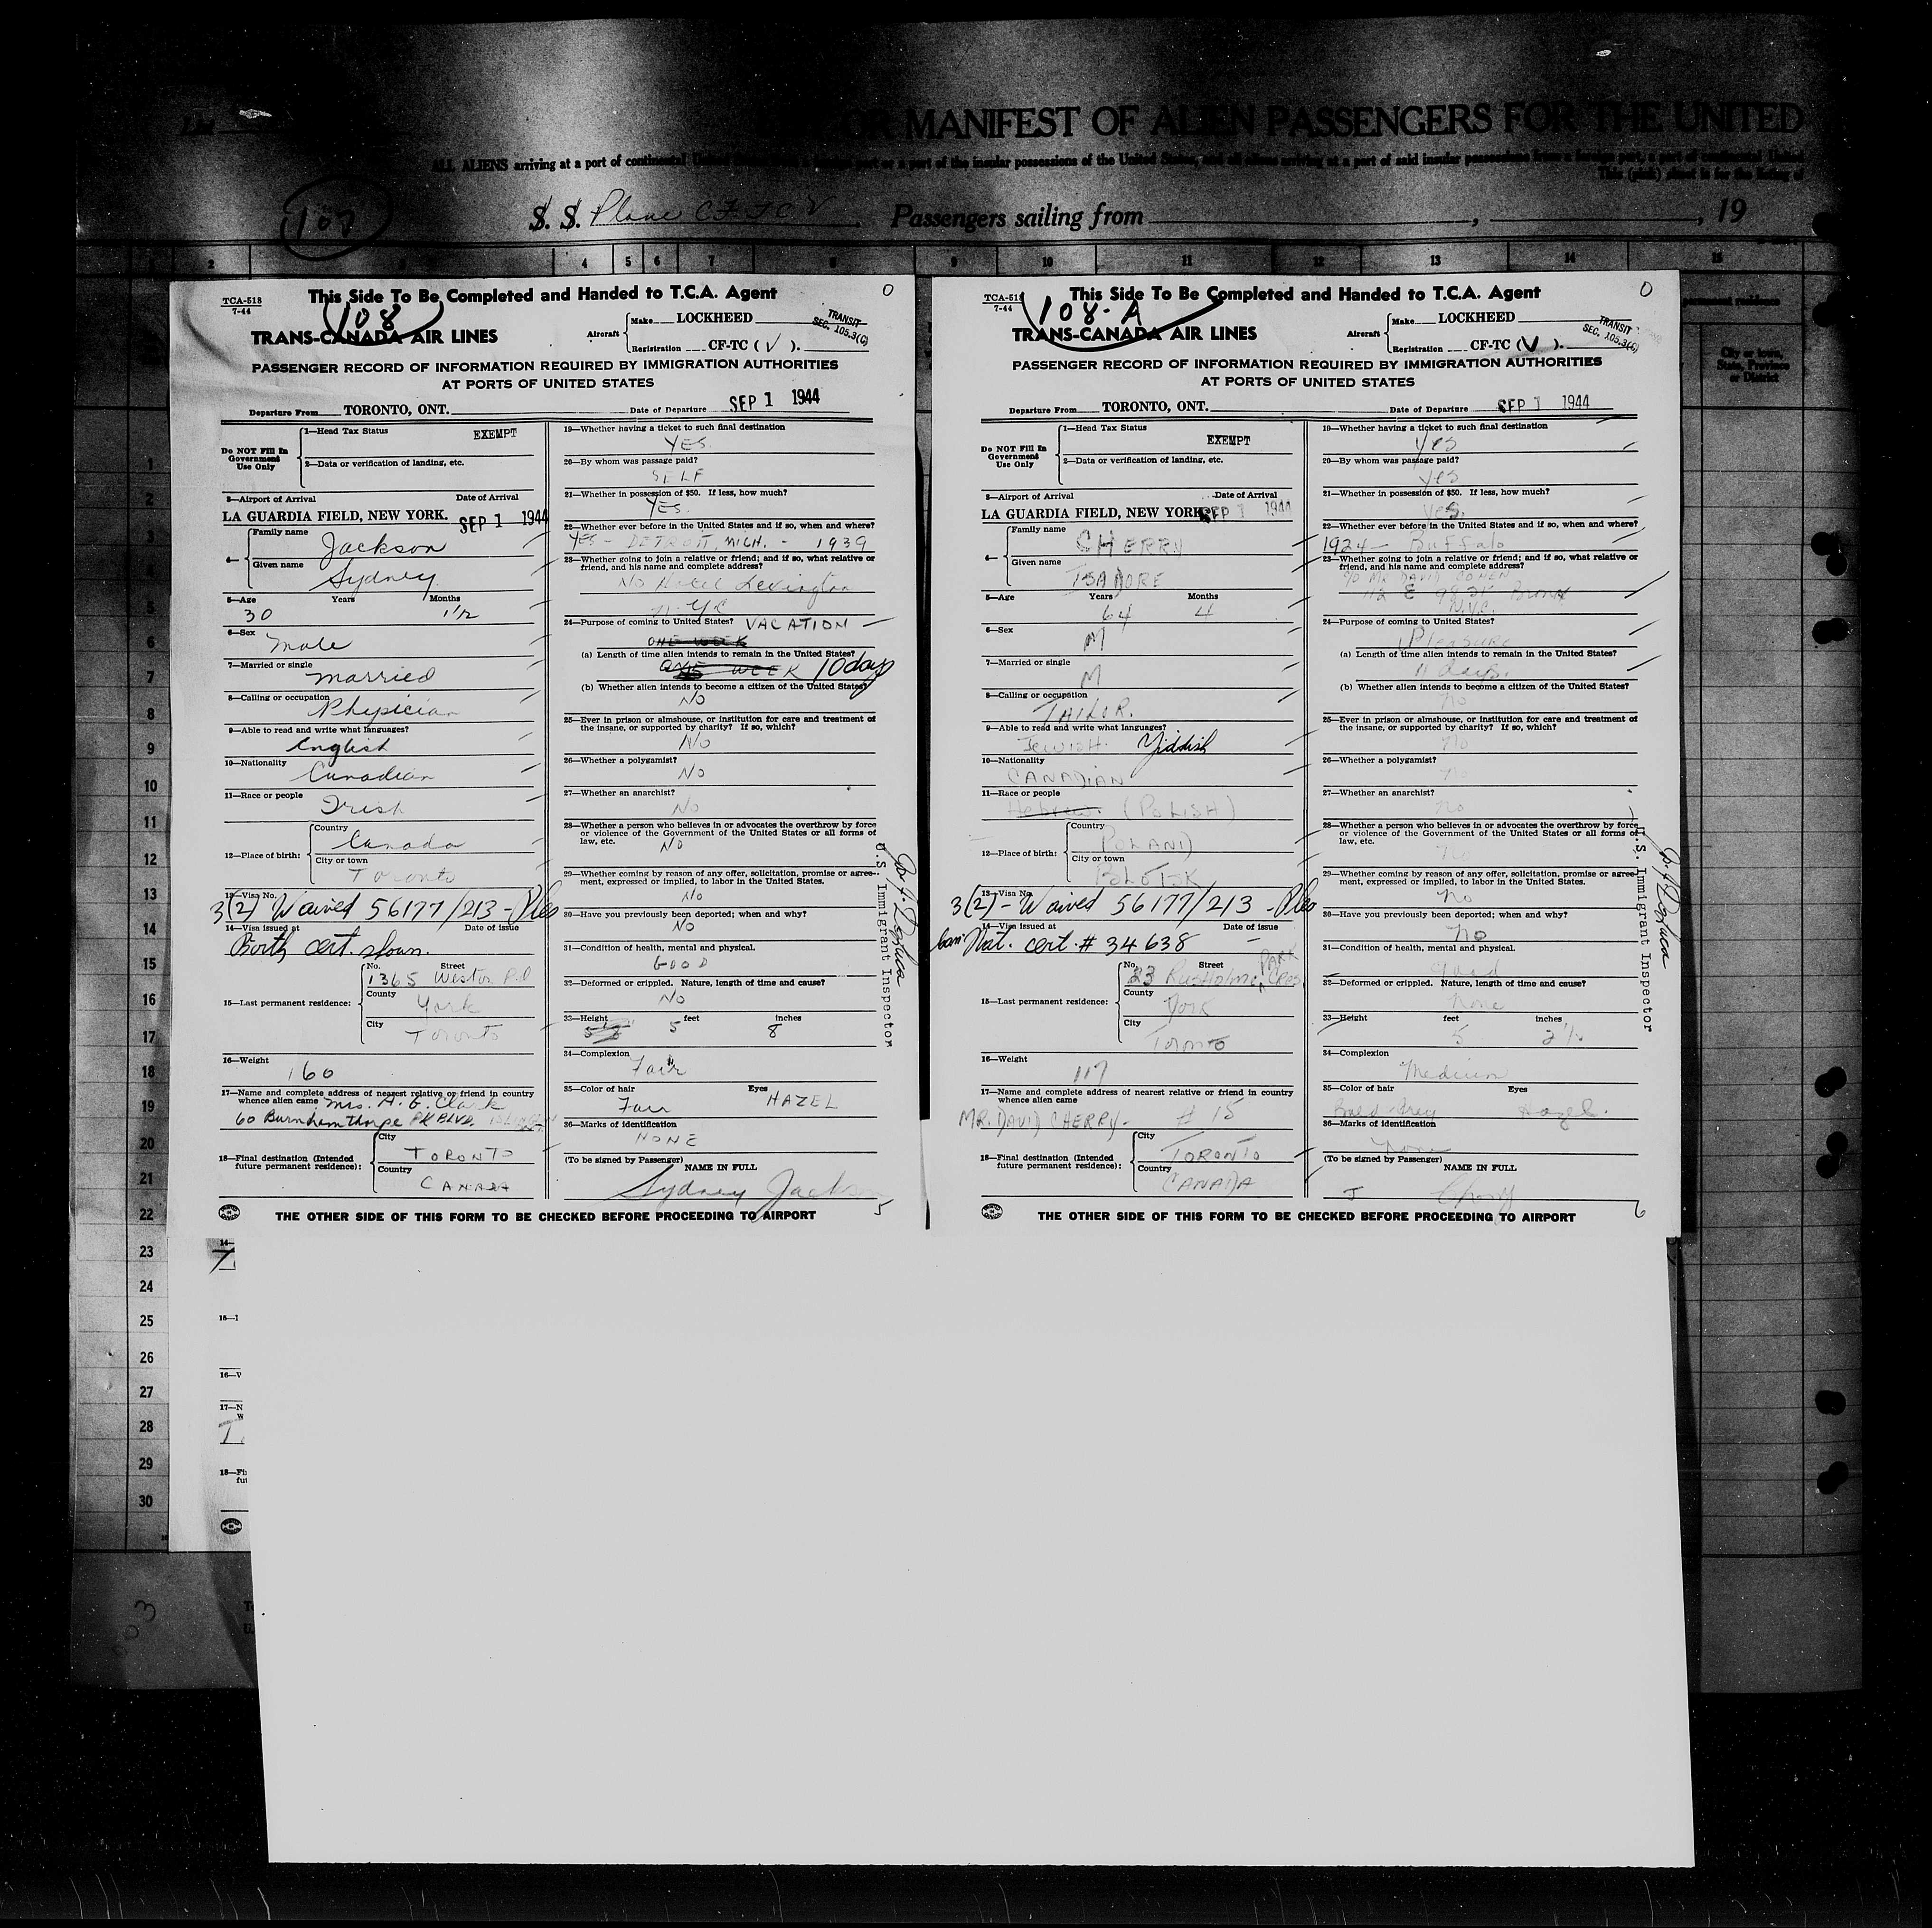 OR MANIFEST OF ALIEN PASSENGERS FOR THE UNITED
ALL ALIENS arriving at a port of continental United
S. S. Plane CF TC V Passengers sailing from , , 19
2 3 4 5 6 7 8 9 10 11 12 13 14 15
TCA-518
7-44
This Side To Be Completed and Handed to T.C.A. Agent
O
108
TRANS-CANADA AIR LINES
Aircraft
Make LOCKHEED
Registration CF-TC ( V ).
TRANSIT
SEC. 105.3(G)
PASSENGER RECORD OF INFORMATION REQUIRED BY IMMIGRATION AUTHORITIES
AT PORTS OF UNITED STATES
Departure From TORONTO, ONT. Date of Departure SEP 1 1944
Do NOT Fill In
Government
Use Only
1—Head Tax Status EXEMPT
2—Data or verification of landing, etc.
3—Airport of Arrival Date of Arrival
LA GUARDIA FIELD, NEW YORK. SEP 1 1944
4—
Family name
Jackson
Given name
Sydney
5—Age Years Months
30 1 1/2
6—Sex
Male
7—Married or single
Married
8—Calling or occupation
Physician
9—Able to read and write what languages?
English
10—Nationality
Canadian
11—Race or people
Irish
12—Place of birth:
Country
Canada
City or town
Toronto
13—Visa No.
3(2) Waived 56177/213 - Ples
14—Visa issued at Date of issue
Birth cert. shown.
15—Last permanent residence:
No. Street
1365 Weston Rd
County
York
City
Toronto
16—Weight
160
17—Name and complete address of nearest relative or friend in country
whence alien came Mrs. A. G. Clark
60 Burnhamthorpe PK BLVD.
18—Final destination (Intended
future permanent residence):
City
TORONTO
Country
CANADA
19—Whether having a ticket to such final destination
YES
20—By whom was passage paid?
SELF
21—Whether in possession of $50. If less, how much?
YES.
22—Whether ever before in the United States and if so, when and where?
YES - DETROIT, MICH. - 1939
23—Whether going to join a relative or friend; and if so, what relative or
friend, and his name and complete address?
No Hotel Lexington
N.Y.C
24—Purpose of coming to United States? VACATION
ONE WEEK
(a) Length of time alien intends to remain in the United States?
WEEK 10 days
(b) Whether alien intends to become a citizen of the United States?
NO
25—Ever in prison or almshouse, or institution for care and treatment of
the insane, or supported by charity? If so, which?
NO
26—Whether a polygamist?
NO
27—Whether an anarchist?
NO
28—Whether a person who believes in or advocates the overthrow by force
or violence of the Government of the United States or all forms of
law, etc.
NO
29—Whether coming by reason of any offer, solicitation, promise or agree-
ment, expressed or implied, to labor in the United States.
NO
30—Have you previously been deported; when and why?
NO
31—Condition of health, mental and physical.
GOOD
32—Deformed or crippled. Nature, length of time and cause?
NO
33—Height feet inches
5 8
34—Complexion
Fair
35—Color of hair Eyes
Fair HAZEL
36—Marks of identification
NONE
(To be signed by Passenger)
NAME IN FULL
Sydney Jackson
5
U.S. Immigrant Inspector
THE OTHER SIDE OF THIS FORM TO BE CHECKED BEFORE PROCEEDING TO AIRPORT
TCA-51
7-44
This Side To Be Completed and Handed to T.C.A. Agent
O
108-A
TRANS-CANADA AIR LINES
Aircraft
Make LOCKHEED
Registration CF-TC ( V ).
TRANSIT
SEC. 105.3(G)
PASSENGER RECORD OF INFORMATION REQUIRED BY IMMIGRATION AUTHORITIES
AT PORTS OF UNITED STATES
Departure From TORONTO, ONT. Date of Departure SEP 1 1944
Do NOT Fill In
Government
Use Only
1—Head Tax Status
EXEMPT
2—Data or verification of landing, etc.
3—Airport of Arrival Date of Arrival
LA GUARDIA FIELD, NEW YORK SEP 1 1944
4—
Family name
CHERRY
Given name
ISADORE
5—Age Years Months
64 4
6—Sex
M
7—Married or single
M
8—Calling or occupation
TAILOR.
9—Able to read and write what languages?
Jewish. Yiddish
10—Nationality
CANADIAN
11—Race or people
Hebrew. (POLISH)
12—Place of birth:
Country
POLAND
City or town
BLOTSK
13—Visa No.
3(2) - Waived 56177/213 - Ples
14—Visa issued at Date of issue
Can. Nat. cert. # 34638
15—Last permanent residence:
No. Street
23 Rusholme PARK Cres
County
York
City
Toronto
16—Weight
117
17—Name and complete address of nearest relative or friend in country
whence alien came
MR. DAVID CHERRY - # 15
18—Final destination (Intended
future permanent residence):
City
TORONTO
Country
CANADA
19—Whether having a ticket to such final destination
Yes
20—By whom was passage paid?
Yes
21—Whether in possession of $50. If less, how much?
Yes.
22—Whether ever before in the United States and if so, when and where?
1924 - Buffalo
23—Whether going to join a relative or friend; and if so, what relative or
friend, and his name and complete address?
MR DAVID COHEN
112 E 98 St Bronx
N.Y.C.
24—Purpose of coming to United States?
Pleasure
(a) Length of time alien intends to remain in the United States?
11 days.
(b) Whether alien intends to become a citizen of the United States?
no
25—Ever in prison or almshouse, or institution for care and treatment of
the insane, or supported by charity? If so, which?
no
26—Whether a polygamist?
no
27—Whether an anarchist?
no
28—Whether a person who believes in or advocates the overthrow by force
or violence of the Government of the United States or all forms of
law, etc.
no
29—Whether coming by reason of any offer, solicitation, promise or agree-
ment, expressed or implied, to labor in the United States.
no
30—Have you previously been deported; when and why?
no
31—Condition of health, mental and physical.
good
32—Deformed or crippled. Nature, length of time and cause?
none
33—Height feet inches
5 2 1/2
34—Complexion
Medium
35—Color of hair Eyes
Grey Hazel.
36—Marks of identification
none
(To be signed by Passenger)
NAME IN FULL
6
U.S. Immigrant Inspector
THE OTHER SIDE OF THIS FORM TO BE CHECKED BEFORE PROCEEDING TO AIRPORT
1
2
3
4
5
6
7
8
9
10
11
12
13
14
15
16
17
18
19
20
21
22
23
24
25
26
27
28
29
30